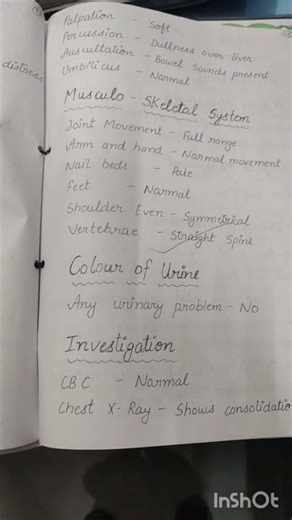 distress
Palpation - Soft
Percussion - Dullness over liver
Auscultation - Bowel Sounds present
Umbilicus - Normal
Musculo - Skeletal System
Joint Movement - Full range
Arm and hand - Normal movement
Nail beds - Pale
Feet - Normal
Shoulder Even - Symmetrical
Vertebrae - Straight Spine
Colour of Urine
Any urinary problem - No
Investigation
CBC - Normal
Chest X-Ray - Shows consolidatio
InShOt